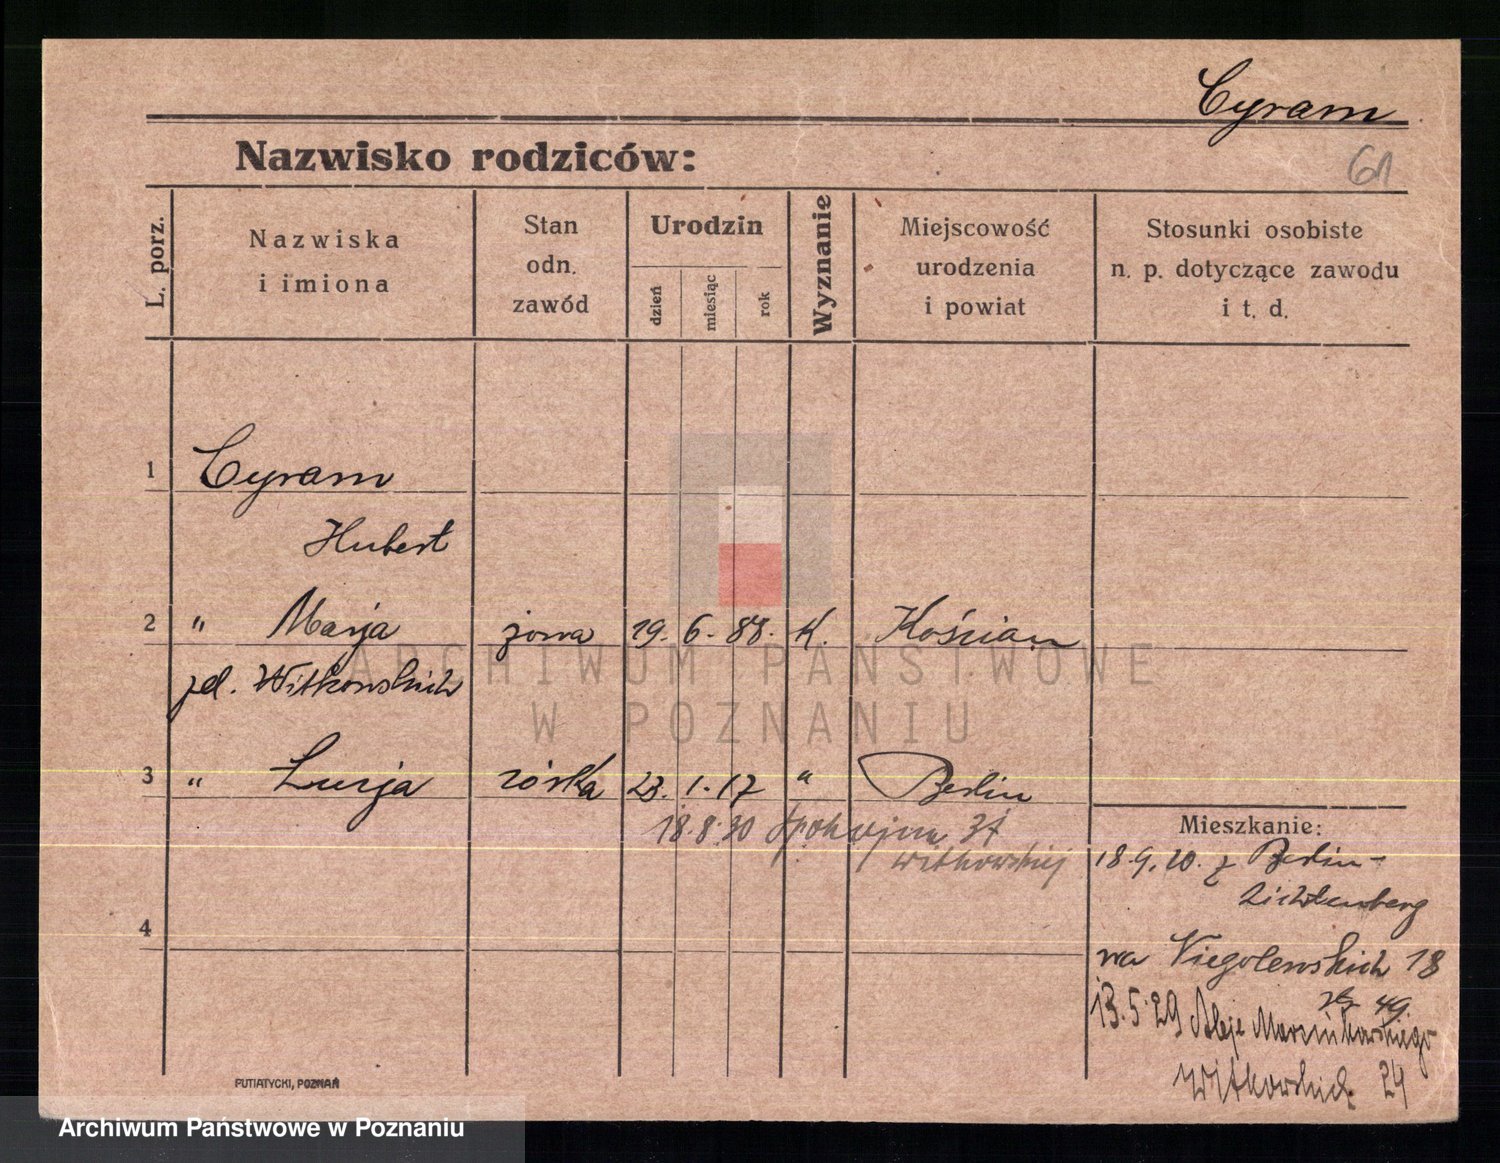 Cyram
Nazwisko rodziców:
61
L. porz.
Nazwiska
i imiona
Stan
odn.
zawód
Urodzin
dzień
miesiąc
rok
Wyznanie
Miejscowość
urodzenia
i powiat
Stosunki osobiste
n. p. dotyczące zawodu
i t. d.
1 Cyram
Hubert
2 " Marja żona 19. 6. 88. K. Kościan
zd. Witkowskich
ARCHIWUM PAŃSTWOWE
W POZNANIU
3 " Lucja córka 23. 1. 17 " Berlin
18.8.30 Spokojna 37
Witkowskiej
Mieszkanie:
18.9.20. z Berlin-
Lichtenberg
4
na Niegolewskich 18
49.
13.5.29 Aleje Marcinkowskiego
Witkowskich 24
PUTIATYCKI, POZNAŃ
Archiwum Państwowe w Poznaniu